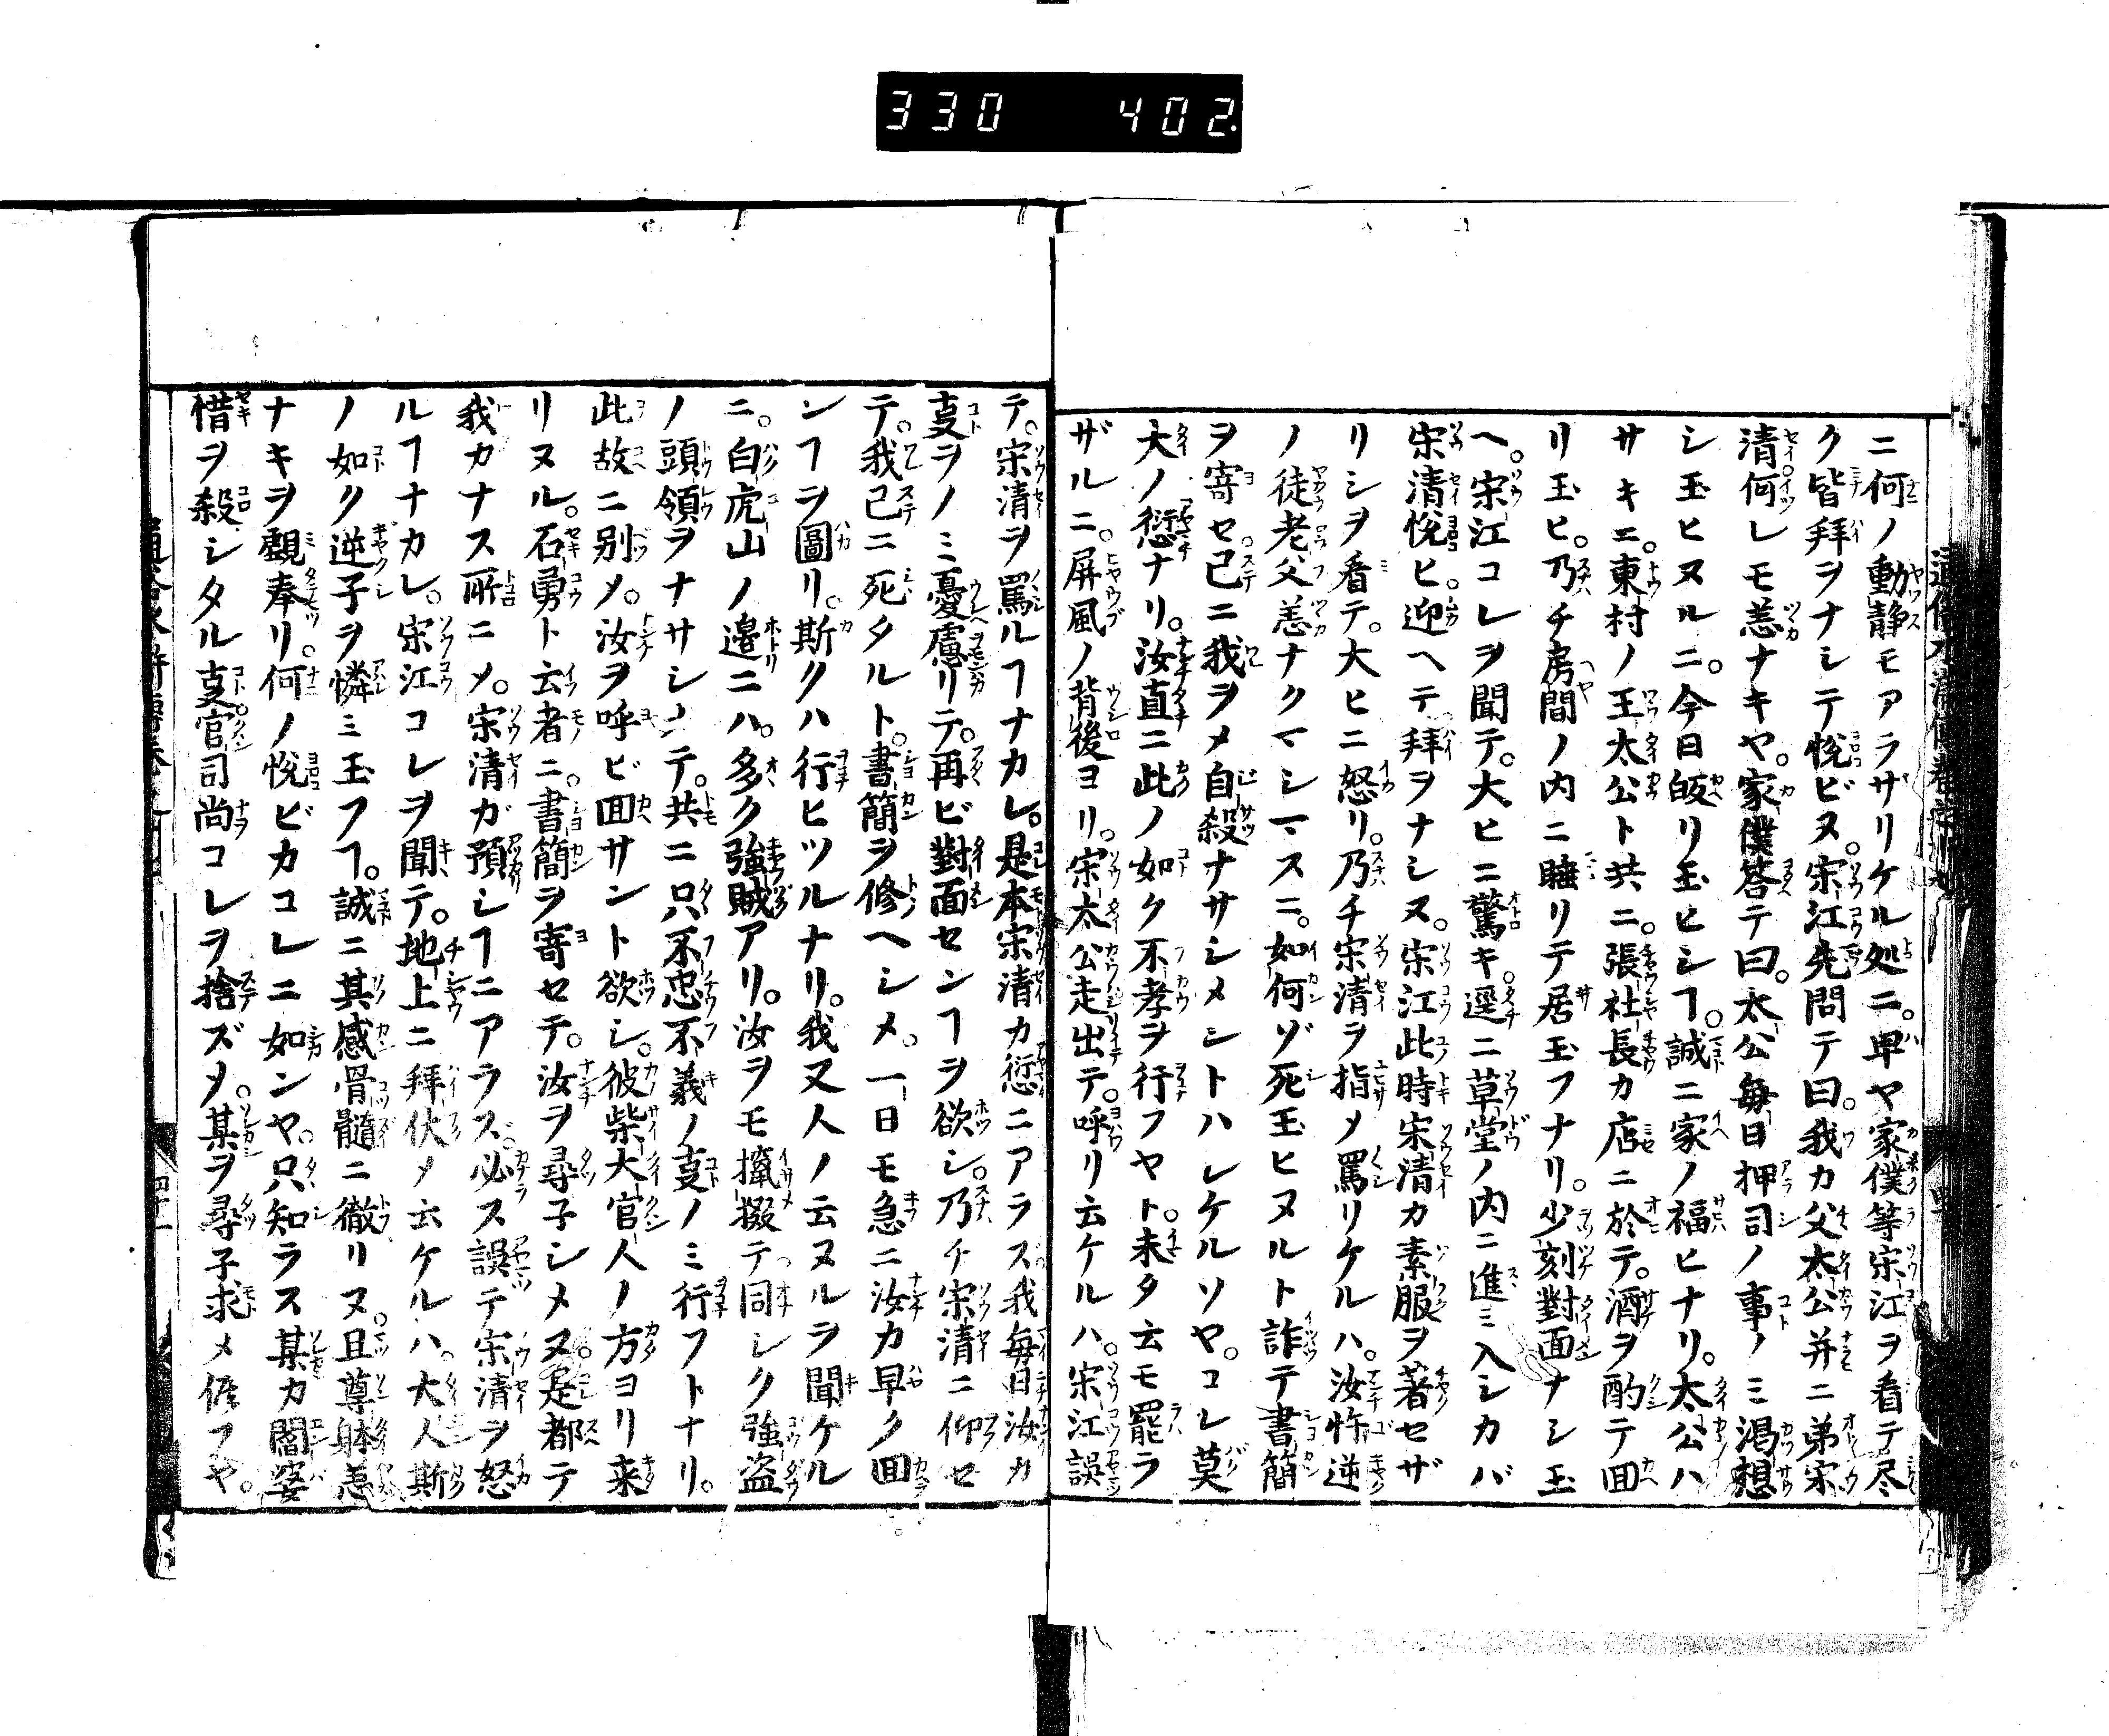 330 402.
ニ何ノ動静モアラザリケル処ニ。早ヤ家僕等宋江ヲ看テ尽
ク皆拜ヲナシテ悦ビヌ。宋江先問テ曰。我カ父太公并ニ弟宋
清何レモ恙ナキヤ。家僕答テ曰。太公毎日押司ノ事ノミ渇想
シ玉ヒヌルニ。今日皈リ玉ヒシヿ。誠ニ家ノ福ヒナリ。太公ハ
サキニ。東村ノ王太公ト共ニ。張社長カ店ニ於テ。酒ヲ酌テ回
リ玉ヒ。乃チ房間ノ内ニ睡リテ居玉フナリ。少刻對面ナシ玉
ヘ。宋江コレヲ聞テ。大ヒニ驚キ。逕ニ草堂ノ内ニ進ミ入シカバ
宋清悦ヒ。迎ヘテ拜ヲナシヌ。宋江此時宋清カ素服ヲ著セザ
リシヲ看テ。大ヒニ怒リ。乃チ宋清ヲ指メ罵リケルハ。汝忤逆
ノ徒老父恙ナクマシマスニ。如何ゾ死玉ヒヌルト詐テ書簡
ヲ寄セ。已ニ我ヲメ自殺ナサシメシトハシケルソヤ。コレ莫
大ノ愆ナリ。汝直ニ此ノ如ク不孝ヲ行フヤト。未タ云モ罷ラ
ザルニ。屏風ノ背後ヨリ。宋太公走出テ。呼リ云ケルハ。宋江誤
テ。宋清ヲ罵ルヿナカレ。是本宋清カ愆ニアラズ我毎日汝カ
叓ヲノミ憂慮リテ。再ビ對面センヿヲ欲シ。乃チ宋清ニ仰セ
テ。我已ニ死タルト。書簡ヲ修ヘシメ。一日モ急ニ汝カ早ク回
ンヿヲ圖リ。斯クハ行ヒツルナリ。我又人ノ云ヌルヲ聞ケル
ニ。白虎山ノ邉ニハ。多ク強賊アリ。汝ヲモ攛掇テ同シク強盗
ノ頭領ヲナサシメテ。共ニ只不忠不義ノ叓ノミ行フトナリ。
此故ニ别メ。汝ヲ呼ビ回サント欲シ。彼柴大官人ノ方ヨリ来
リヌル。石勇ト云者ニ。書簡ヲ寄セテ。汝ヲ尋子シメヌ。是都テ
我カナス所ニメ。宋清ガ預シヿニアラズ。必ス誤テ宋清ヲ怒
ルヿナカレ。宋江コレヲ聞テ。地上ニ拜伏メ云ケルハ。大人斯
ノ如ク逆子ヲ憐ミ玉フヿ。誠ニ其感骨髓ニ徹リヌ。且尊躰恙
ナキヲ觀奉リ。何ノ悦ビカコレニ如ンヤ。只知ラス某カ閻婆
惜ヲ殺シタル叓。官司尚コレヲ捨ズメ。某ヲ尋子求メ候フヤ。